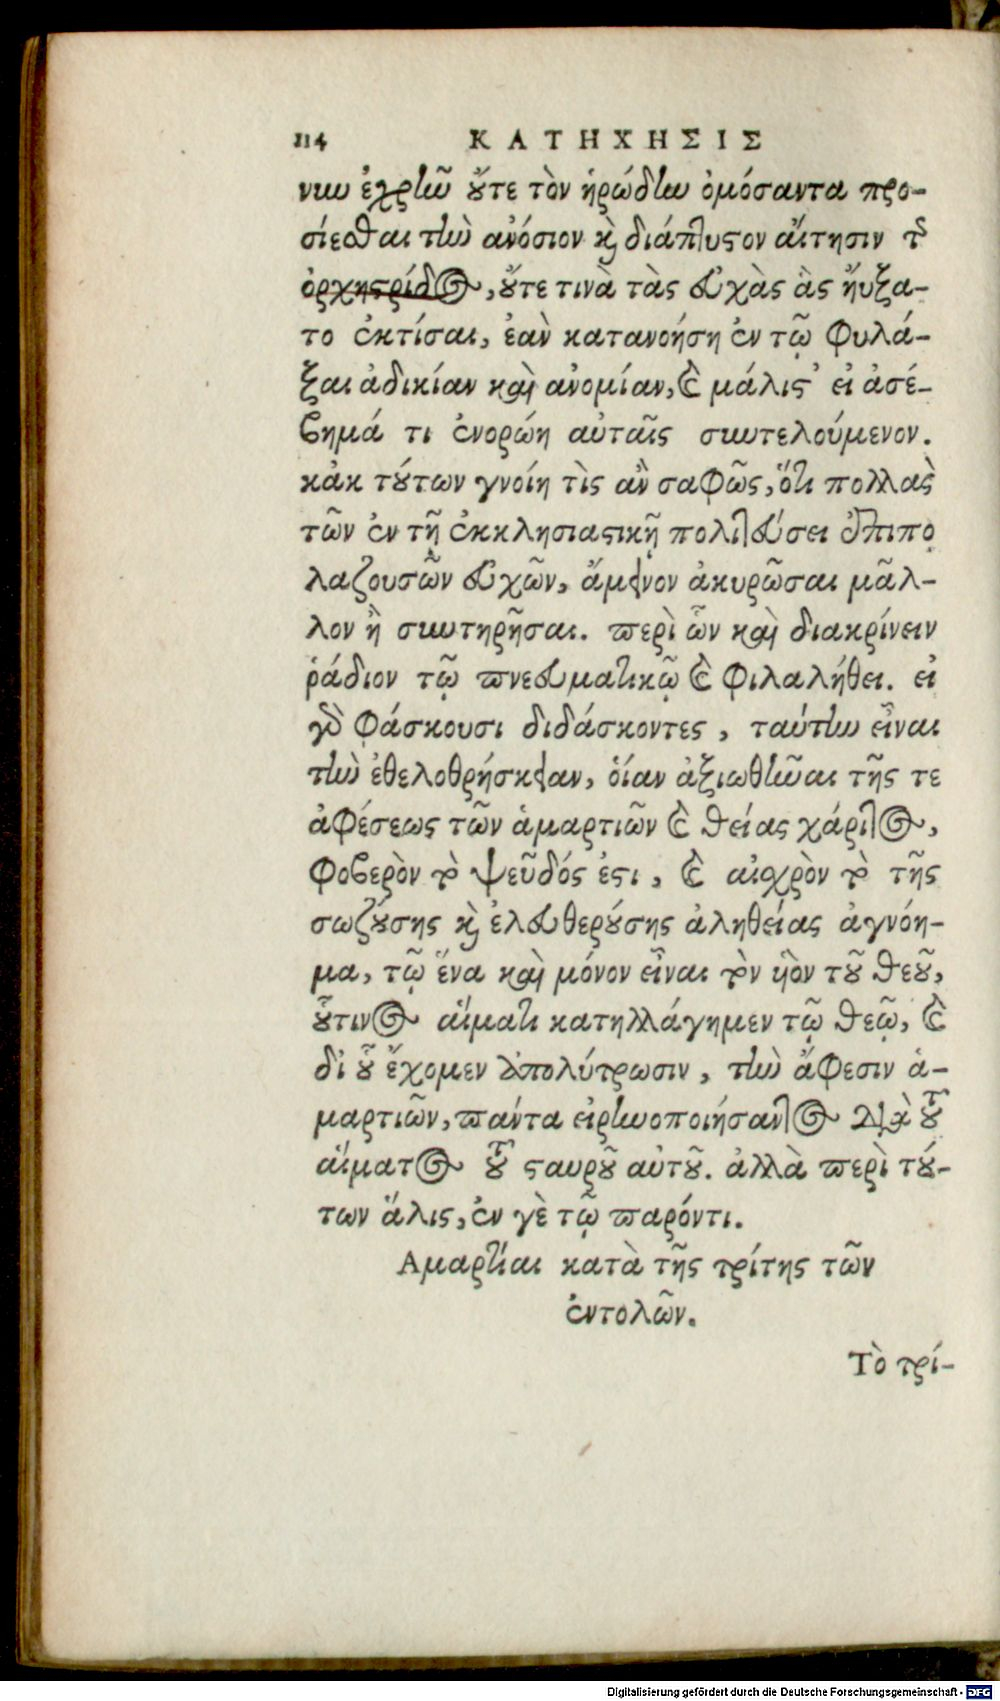 114 ΚΑΤΗΧΗΣΙΣ
νυν ἐχρῆν οὔτε τὸν ἡρώδην ὀμόσαντα προ-
σίεσθαι τὴν ἀνόσιον καὶ διάπτυστον αἴτησιν τῆς
ὀρχηστρίδος, οὔτε τινὰ τὰς εὐχὰς ἃς ηὔξα-
το ἐκτίσαι, ἐὰν κατανοήση ἐν τῷ φυλά-
ξαι ἀδικίαν καὶ ἀνομίαν, καὶ μάλιστ’ εἰ ἀσέ-
βημά τι ἐνορώη αὐταῖς συντελούμενον.
κἀκ τούτων γνοίη τὶς ἂν σαφῶς, ὅτι πολλὰς
τῶν ἐν τῇ ἐκκλησιαστικῇ πολιτεύσει ἐπιπο
λαζουσῶν εὐχῶν, ἄμεινον ἀκυρῶσαι μᾶλ-
λον ἢ συντηρῆσαι. περὶ ὧν καὶ διακρίνειν
ῥάδιον τῷ πνευματικῷ καὶ φιλαλήθει. εἰ
γὰρ φάσκουσι διδάσκοντες, ταύτην εἶναι
τὴν ἐθελοθρήσκειαν, οἵαν ἀξιωθῆναι τῆς τε
ἀφέσεως τῶν ἁμαρτιῶν καὶ θείας χάριτος,
φοβερὸν τὸ ψεῦδός ἐστι, καὶ αἰσχρὸν τὸ τῆς
σωζούσης καὶ ἐλευθερούσης ἀληθείας ἀγνόη-
μα, τῷ ἕνα καὶ μόνον εἶναι τὸν ὑὸν τοῦ θεοῦ,
οὗτινος αἵματι κατηλλάγημεν τῷ θεῷ, καὶ
δι οὗ ἔχομεν ἀπολύτρωσιν, τὴν ἄφεσιν ἁ-
μαρτιῶν, πάντα εἰρηνοποιήσαντος διὰ τοῦ
αἵματος τοῦ σταυροῦ αὐτοῦ. ἀλλὰ περὶ τού-
των ἅλις, ἐν γὲ τῷ παρόντι.
Αμαρτίαι κατὰ τῆς τρίτης τῶν
ἐντολῶν.
Τὸ τρί-
Digitalisierung gefördert durch die Deutsche Forschungsgemeinschaft - DFG